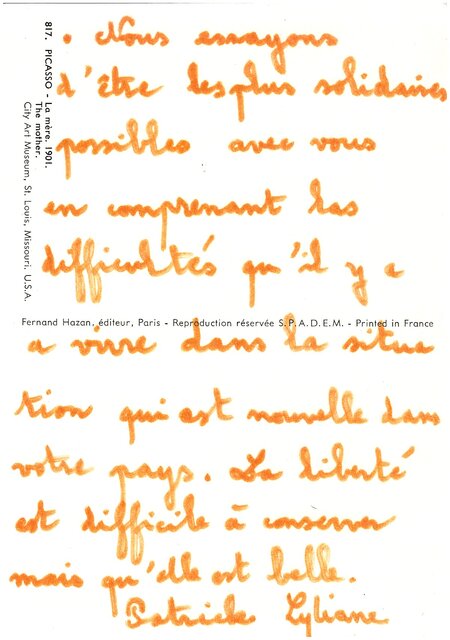 817. PICASSO - La mère. 1901.
The mother.
City Art Museum, St. Louis, Missouri. U.S.A.
. Nous essayons
d'être les plus solidaires
possibles avec vous
en comprenant les
difficultés qu'il y a
Fernand Hazan, éditeur, Paris - Reproduction réservée S.P.A.D.E.M. - Printed in France
a vivre dans la situa
tion qui est nouvelle dans
votre pays. La liberté
est difficile à conserver
mais qu'elle est belle.
Patrick Lyliane